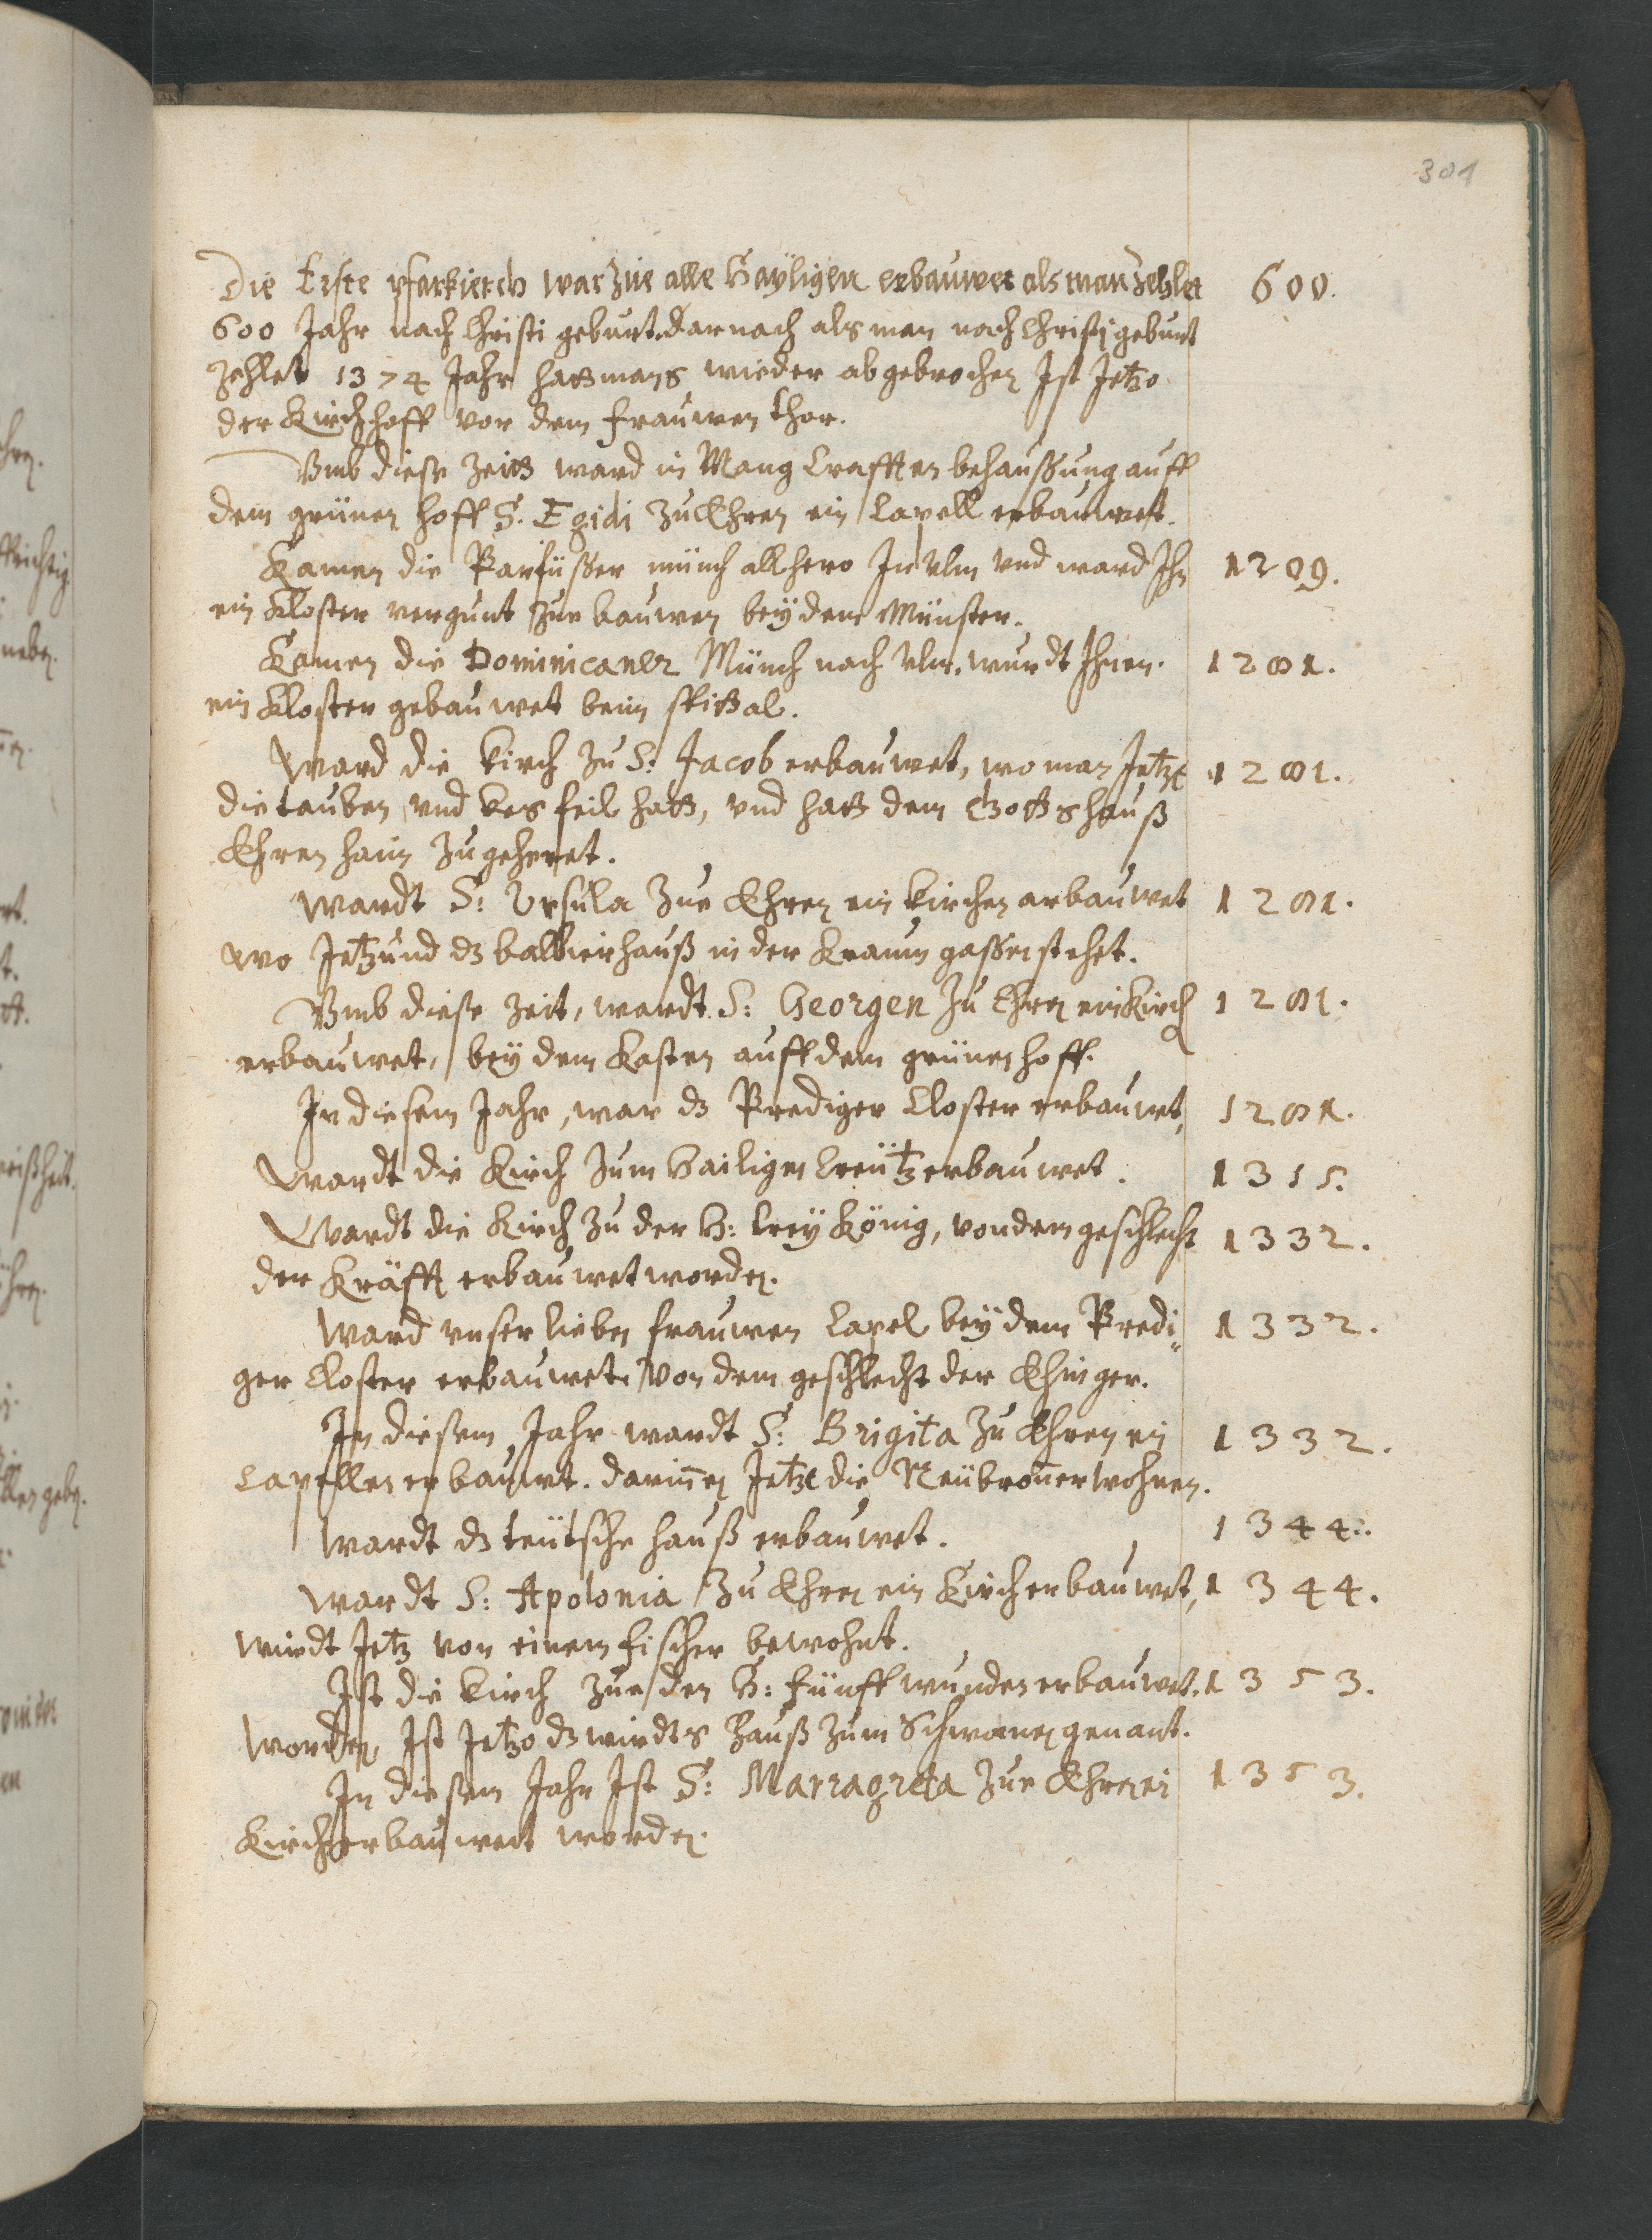 301
Die Erste pfarkierch war zue alle Hayligen erbauwet als man zehlet 600.
600 Jahr nach Christi geburt. darnach als man nach Christj geburt
zehlet 1374 Jahr hatt mans wieder abgebrochen Ist Jetzo
der Kirchhoff vor dem frauwen thor.
Vmb diese Zeitt ward in Mang Crafften behaussung auff
dem grünen hoff S. Egidi zu Ehren ein Capell erbauwet.
Kamen die Parfüsser münch allhero In Ulm vnd ward Ihn 1209.
ein Kloster vergunt zue bauwen beÿ dem Münster.
Kamen die Dominicaner Münch nach Ulm. wurdt Ihnen. 1281.
ein Kloster gebauwet beim spittal.
Ward die Kirch zu S: Jacob erbauwet, wo man Jetzt 1281.
die tauben vnd Kes feil hatt, vnd hatt dem Gottshauß
Ehren haim zugeheret.
Wardt S: Ursula zue Ehren ein Kirchen erbauwet 1281.
wo Jetzund dz balbierhauß in der Kraum gassen stehet.
Vmb diese Zeit, wardt S: Georgen zu Ehren ein Kirch 1281.
erbauwet, beÿ dem Kasten auff dem grünen hoff.
In diesem Jahr, war dz Prediger Closter erbauwt, 1281.
Wardt die Kirch zum Hailigen Creütz erbauwet. 1315.
Wardt die Kirch zu der H: Dreÿ König, von dem geschlecht 1332.
der Kräfft erbauwet worden.
Ward vnser lieben frauwen Capel beÿ dem Predi„ 1332.
ger Closter erbauwet. Von dem geschlecht der Ehinger.
In diesem Jahr wardt S: Brigita zu Ehren ein 1332.
Capellen erbauwt. darinnen Jetzt die Neübronner wohnen.
Wardt dz teütsche hauß erbauwet. 1344.
Wardt S: Apolonia zu Ehren ein Kirch erbauwet, 1344.
wirdt Jetz von einem fischer bewohnt.
Ist die Kirch zue den H: fünff wunden erbauwet. 1353.
worden, Ist Jetzo dz wirdts Hauß zum Schwanen genant.
In diesem Jahr Ist S: Marragreta zue Ehren ein 1353.
Kirch erbauwet worden.